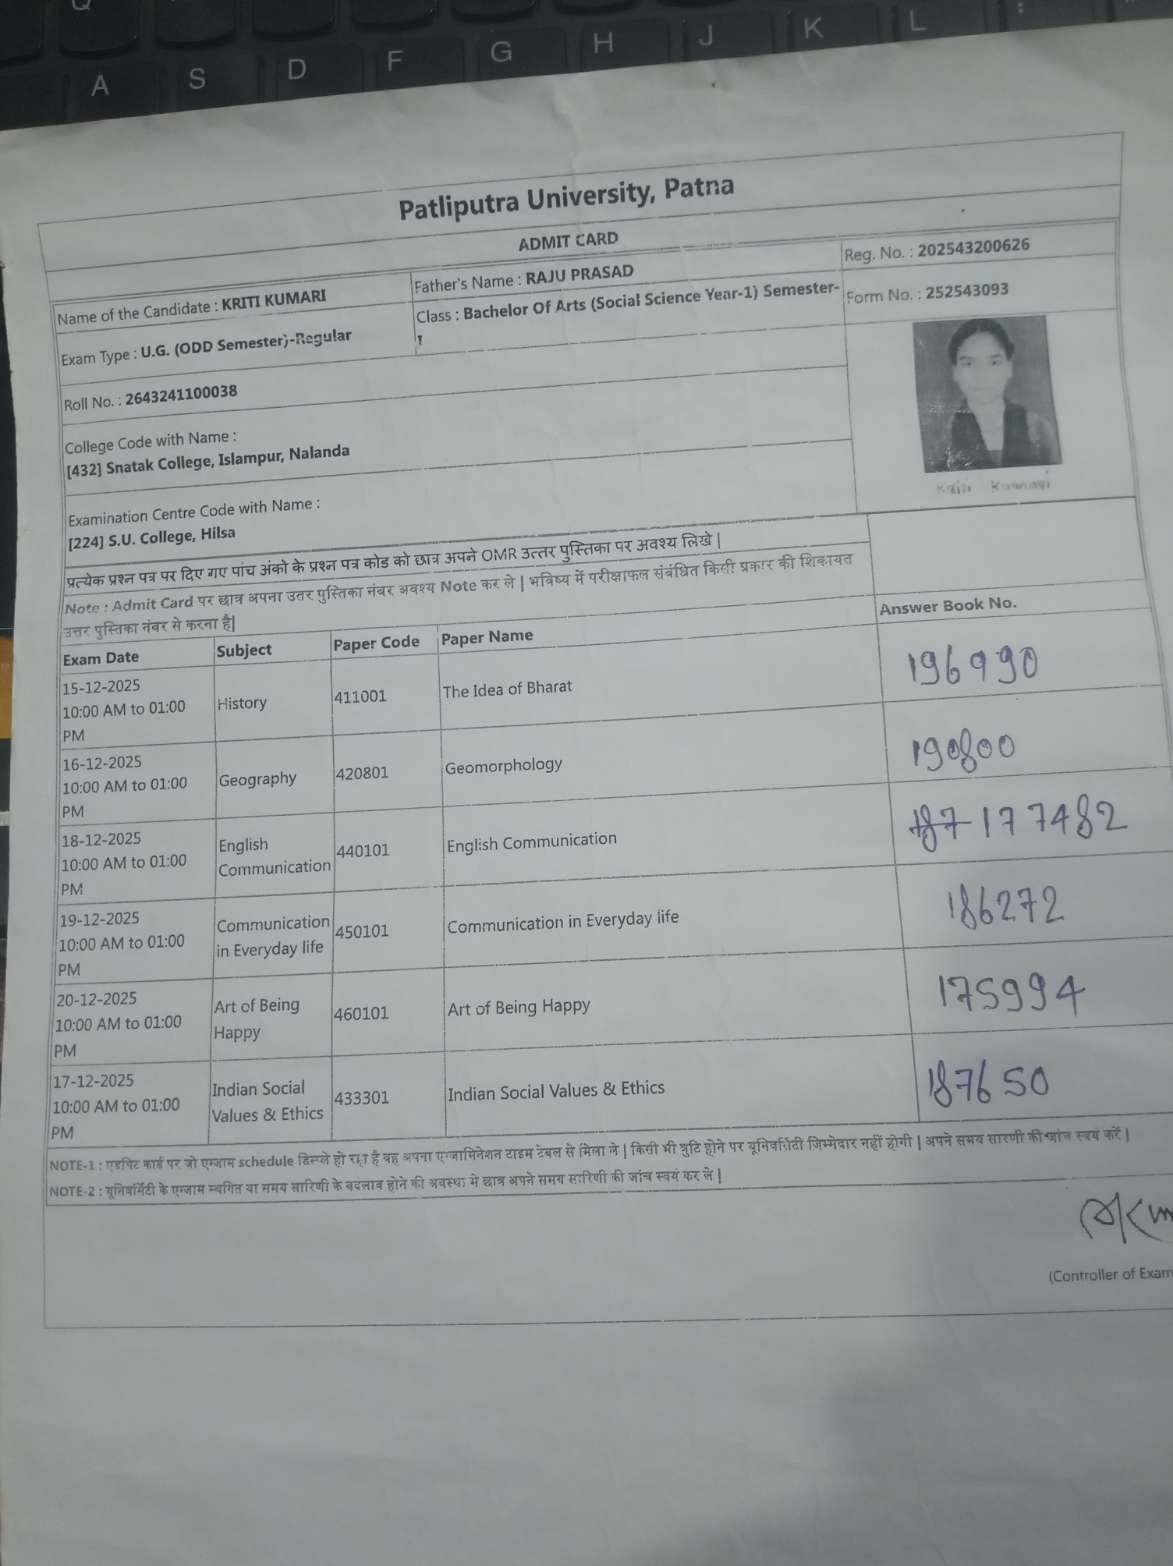 Q
A S D F G H J K L :
Patliputra University, Patna
ADMIT CARD
Name of the Candidate : KRITI KUMARI
Father's Name : RAJU PRASAD
Reg. No. : 202543200626
Exam Type : U.G. (ODD Semester)-Regular
Class : Bachelor Of Arts (Social Science Year-1) Semester-
I
Form No. : 252543093
Roll No. : 2643241100038
College Code with Name :
[432] Snatak College, Islampur, Nalanda
Kriti Kumari
Examination Centre Code with Name :
[224] S.U. College, Hilsa
प्रत्येक प्रश्न पत्र पर दिए गए पांच अंको के प्रश्न पत्र कोड को छात्र अपने OMR उत्तर पुस्तिका पर अवश्य लिखे |
Note : Admit Card पर छात्र अपना उत्तर पुस्तिका नंबर अवश्य Note कर ले | भविष्य में परीक्षाफल संबंधित किसी प्रकार की शिकायत
उत्तर पुस्तिका नंबर से करना है|
Exam Date Subject Paper Code Paper Name Answer Book No.
15-12-2025
10:00 AM to 01:00
PM
History 411001 The Idea of Bharat 196990
16-12-2025
10:00 AM to 01:00
PM
Geography 420801 Geomorphology 190800
18-12-2025
10:00 AM to 01:00
PM
English
Communication
440101 English Communication 177482
19-12-2025
10:00 AM to 01:00
PM
Communication
in Everyday life
450101 Communication in Everyday life 186272
20-12-2025
10:00 AM to 01:00
PM
Art of Being
Happy
460101 Art of Being Happy 175994
17-12-2025
10:00 AM to 01:00
PM
Indian Social
Values & Ethics
433301 Indian Social Values & Ethics 187650
NOTE-1 : एडमिट कार्ड पर जो एग्जाम schedule डिस्प्ले हो रहा है वह अपना एग्जामिनेशन टाइम टेबल से मिला ले | किसी भी त्रुटि होने पर यूनिवर्सिटी जिम्मेदार नहीं होगी | अपने समय सारणी की जांच स्वयं करें |
NOTE-2 : यूनिवर्सिटी के एग्जाम स्थगित या समय सारिणी के बदलाव होने की अवस्था मे छात्र अपने समय सारिणी की जांच स्वयं कर ले |
(Controller of Exam